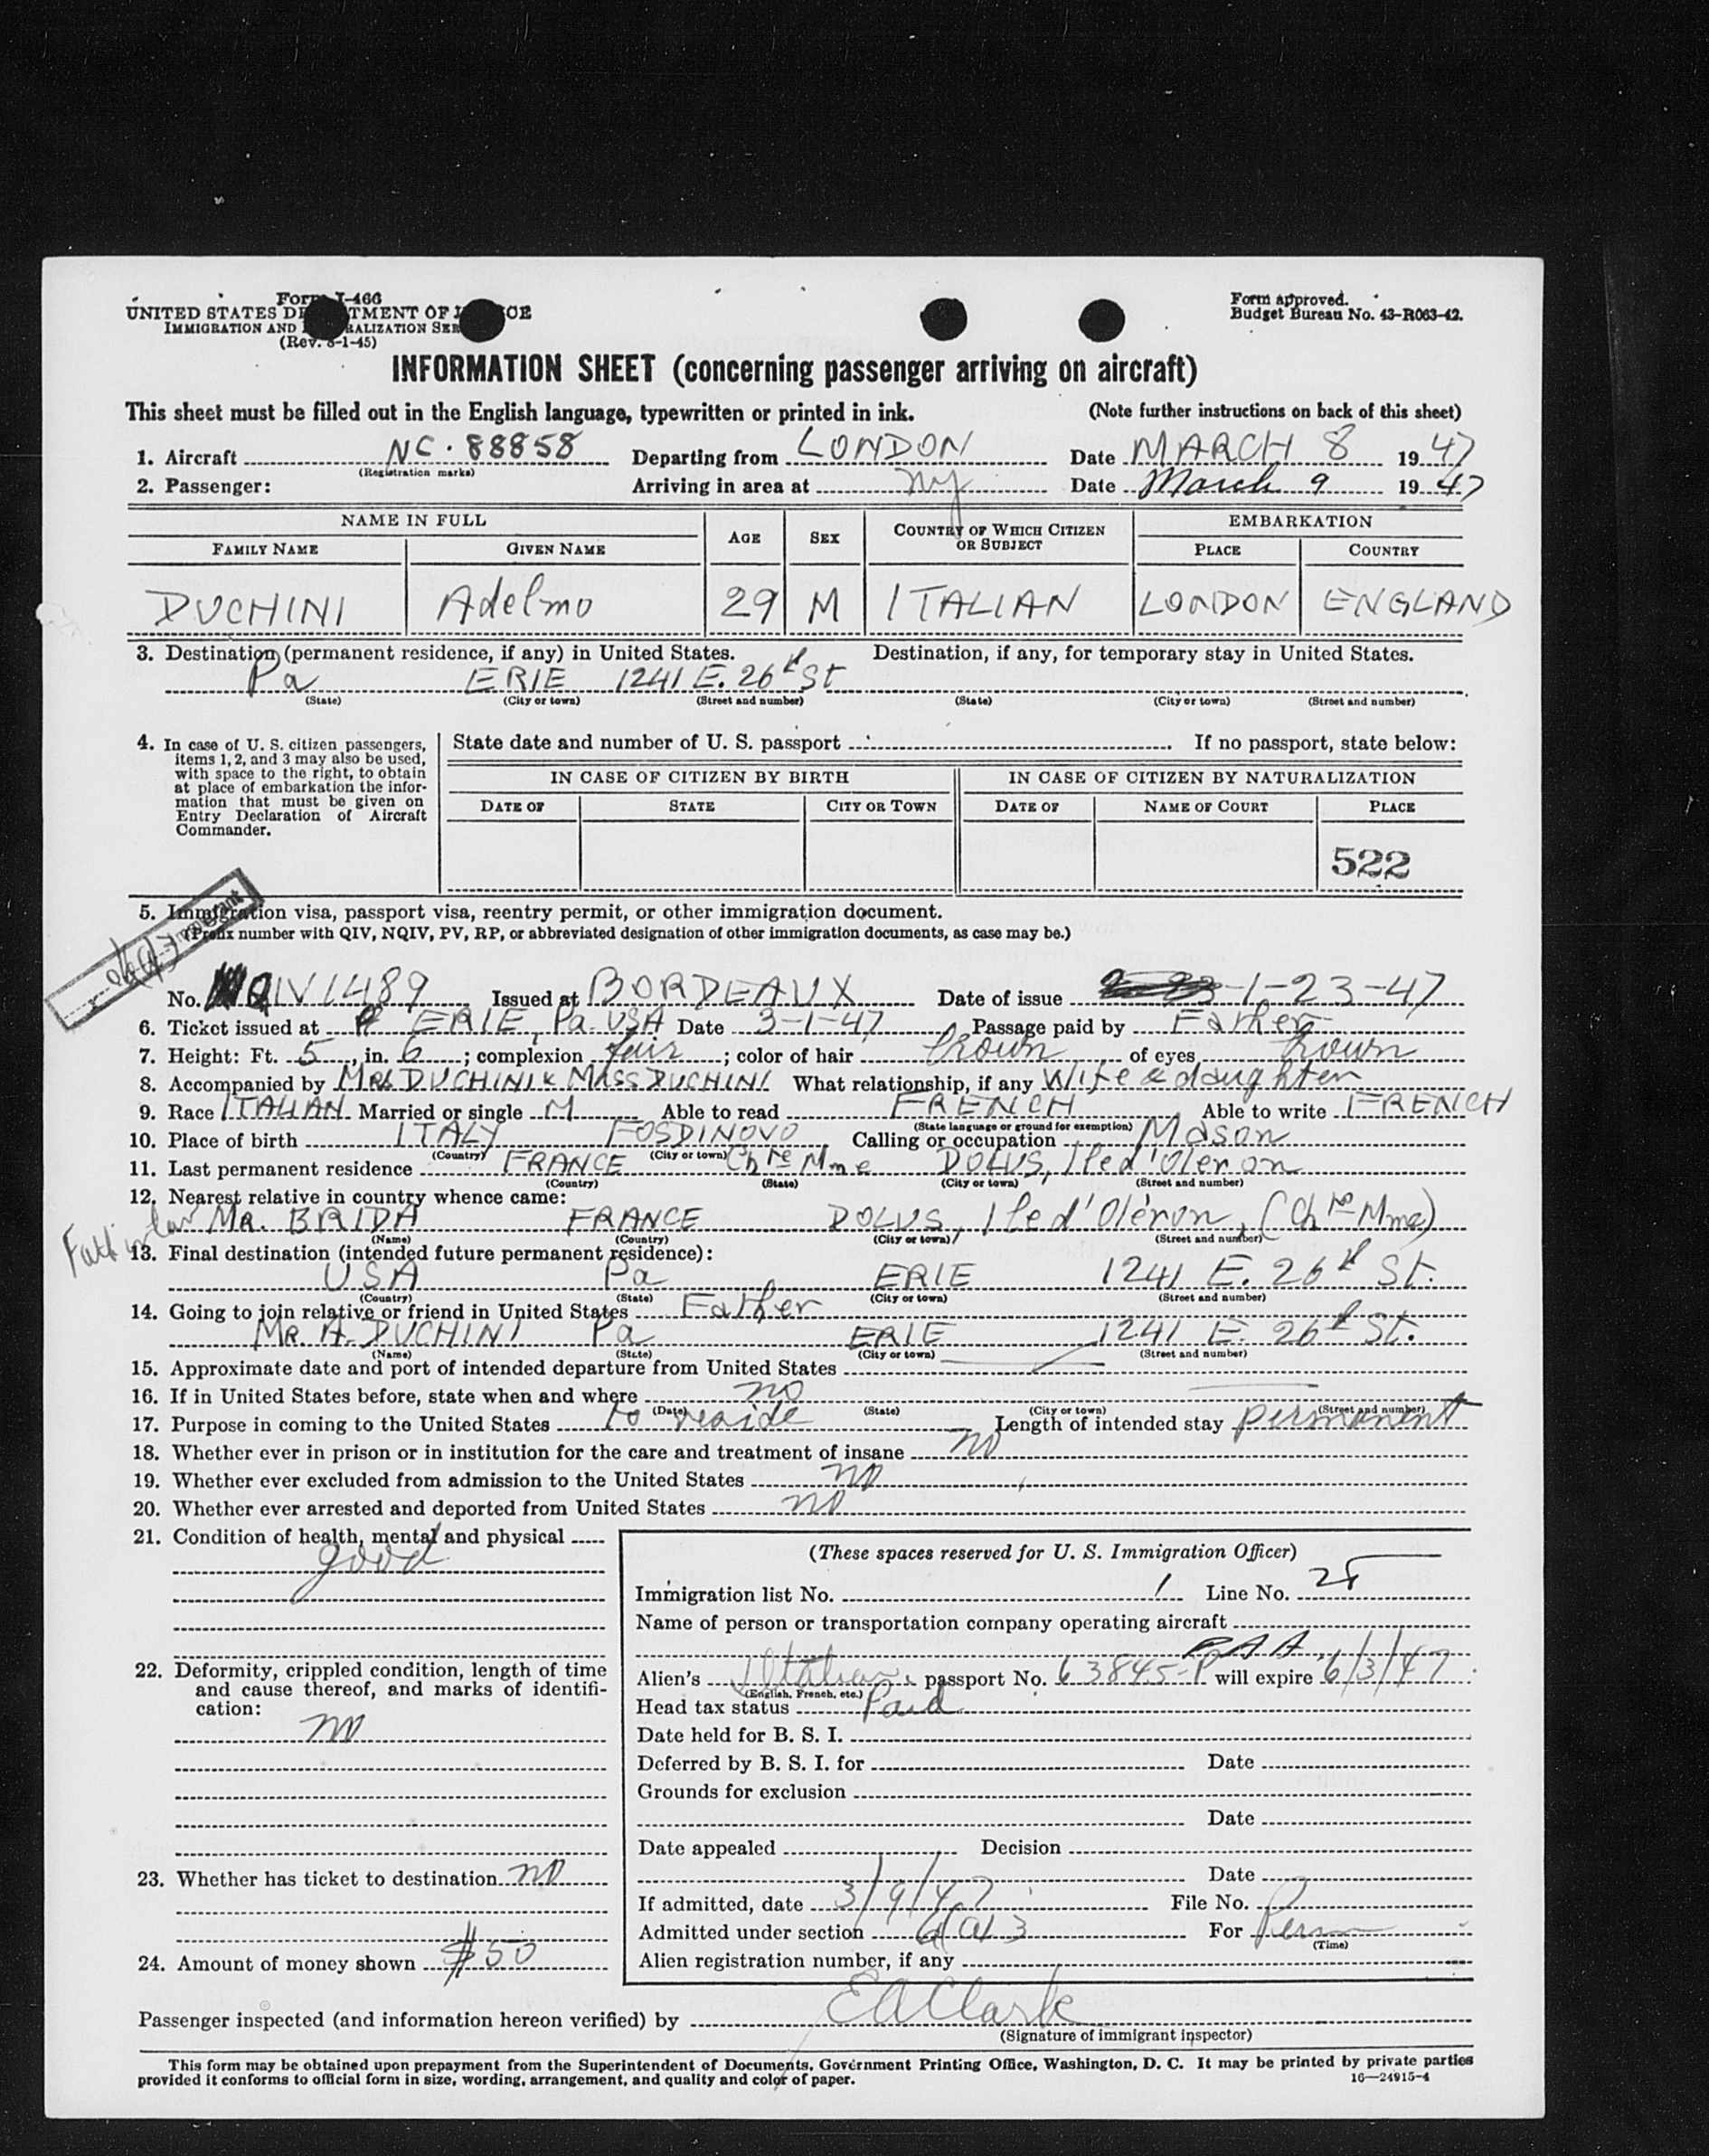 Form I-466
UNITED STATES DE TMENT OF J CE
IMMIGRATION AND RALIZATION SER
(Rev. 8-1-45)
Form approved.
Budget Bureau No. 43-R063-42.
INFORMATION SHEET (concerning passenger arriving on aircraft)
This sheet must be filled out in the English language, typewritten or printed in ink. (Note further instructions on back of this sheet)
1. Aircraft NC-88858 Departing from LONDON Date MARCH 8 1947
(Registration marks)
2. Passenger: Arriving in area at NY Date March 9 1947
NAME IN FULL AGE SEX COUNTRY OF WHICH CITIZEN OR SUBJECT EMBARKATION
FAMILY NAME GIVEN NAME PLACE COUNTRY
DUCHINI Adelmo 29 M ITALIAN LONDON ENGLAND
3. Destination (permanent residence, if any) in United States. Destination, if any, for temporary stay in United States.
Pa ERIE 1241 E. 26th St
(State) (City or town) (Street and number) (State) (City or town) (Street and number)
4. In case of U. S. citizen passengers,
items 1, 2, and 3 may also be used,
with space to the right, to obtain
at place of embarkation the infor-
mation that must be given on
Entry Declaration of Aircraft
Commander.
State date and number of U. S. passport If no passport, state below:
IN CASE OF CITIZEN BY BIRTH IN CASE OF CITIZEN BY NATURALIZATION
DATE OF STATE CITY OR TOWN DATE OF NAME OF COURT PLACE
522
5. Immigration visa, passport visa, reentry permit, or other immigration document.
(Prefix number with QIV, NQIV, PV, RP, or abbreviated designation of other immigration documents, as case may be.)
No. QIV 1489 Issued at BORDEAUX Date of issue 1-23-47
6. Ticket issued at ERIE, Pa. USA Date 3-1-47 Passage paid by Father
7. Height: Ft. 5, in. 6; complexion fair; color of hair brown of eyes brown
8. Accompanied by MRS DUCHINI & MISS DUCHINI What relationship, if any Wife & daughter
9. Race ITALIAN Married or single M Able to read FRENCH Able to write FRENCH
(State language or ground for exemption)
10. Place of birth ITALY FOSDINOVO Calling or occupation Mason
(Country) (City or town)
11. Last permanent residence FRANCE Chte Mme DOLUS, Ile d'Oleron
(Country) (State) (City or town) (Street and number)
12. Nearest relative in country whence came:
Fath in law MR. BRIDA FRANCE DOLUS, Ile d'Oléron, (Chte Mme)
(Name) (Country) (City or town) (Street and number)
13. Final destination (intended future permanent residence):
USA Pa ERIE 1241 E. 26th St.
(Country) (State) (City or town) (Street and number)
14. Going to join relative or friend in United States Father
MR. A. DUCHINI Pa ERIE 1241 E. 26th St.
(Name) (State) (City or town) (Street and number)
15. Approximate date and port of intended departure from United States
16. If in United States before, state when and where no
(Date) (State) (City or town) (Street and number)
17. Purpose in coming to the United States to reside Length of intended stay permanent
18. Whether ever in prison or in institution for the care and treatment of insane no
19. Whether ever excluded from admission to the United States no
20. Whether ever arrested and deported from United States no
21. Condition of health, mental and physical
good
22. Deformity, crippled condition, length of time
and cause thereof, and marks of identifi-
cation:
no
23. Whether has ticket to destination no
24. Amount of money shown $50
(These spaces reserved for U. S. Immigration Officer)
Immigration list No. 1 Line No.
Name of person or transportation company operating aircraft
PAA
Alien's Italian passport No. 63845-P will expire 6/3/47
(English, French, etc.)
Head tax status Paid
Date held for B. S. I.
Deferred by B. S. I. for Date
Grounds for exclusion
Date
Date appealed Decision
Date
If admitted, date 3/9/47 File No.
Admitted under section 6(a)3 For Perm
(Time)
Alien registration number, if any
Passenger inspected (and information hereon verified) by EAClark
(Signature of immigrant inspector)
This form may be obtained upon prepayment from the Superintendent of Documents, Government Printing Office, Washington, D. C. It may be printed by private parties
provided it conforms to official form in size, wording, arrangement, and quality and color of paper. 16—24915-4